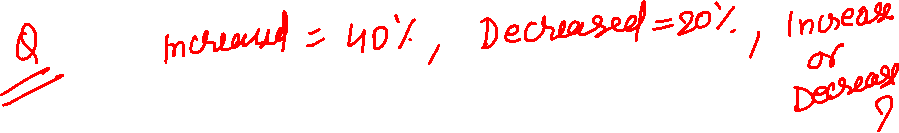 Q Increased = 40%, Decreased = 20%, Increase
or
Decrease
?